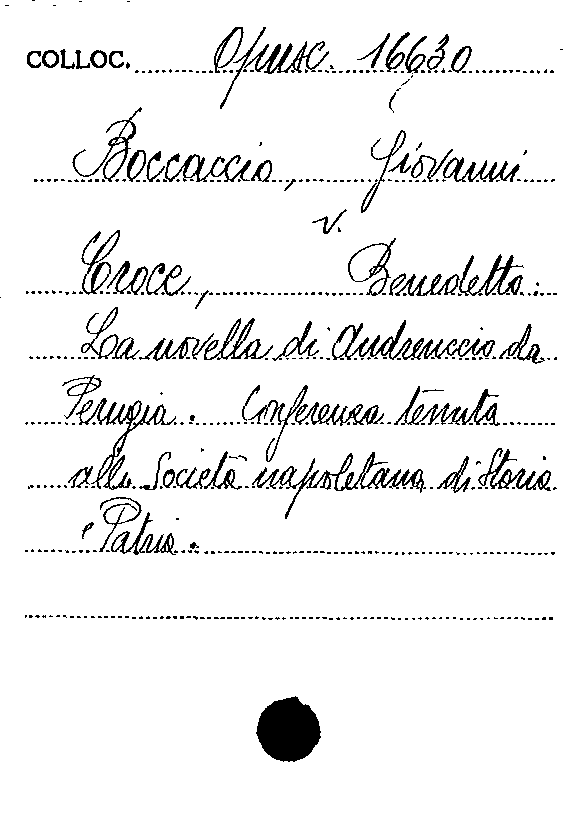 COLLOC. Opusc. 16630
Boccaccio, Giovanni
v.
Croce, Benedetto:
La novella di Andreuccio da
Perugia. Conferenza tenuta
alla Società napoletana di Storia
Patria.